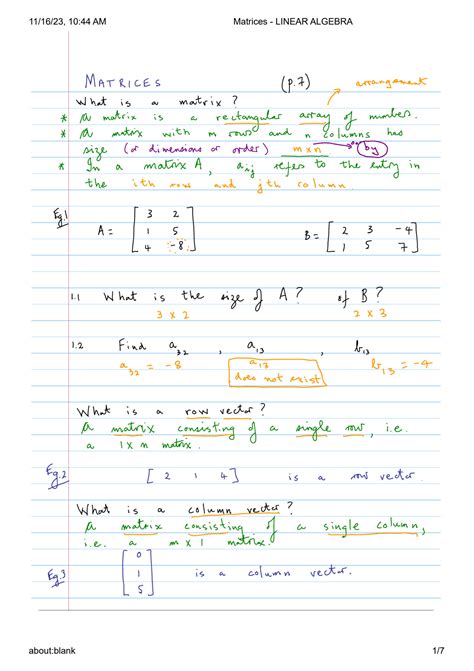 11/16/23, 10:44 AM Matrices - LINEAR ALGEBRA
MATRICES (p.7) arrangement
What is a matrix ?
* A matrix is a rectangular array of numbers.
* A matrix with m rows and n columns has
size (or dimensions or order) m x n → by
* In a matrix A, a_ij refers to the entry in
the ith row and jth column.
Eg.1
A = [ 3 2
1 5
4 -8 ]
B = [ 2 3 -4
1 5 7 ]
1.1 What is the size of A ? of B ?
3 x 2 2 x 3
1.2 Find a_32 , a_13 , b_13
a_32 = -8 a_13 does not exist b_13 = -4
What is a row vector ?
A matrix consisting of a single row, i.e.
a 1 x n matrix.
Eg.2 [ 2 1 4 ] is a row vector.
What is a column vector ?
A matrix consisting of a single column,
i.e. a m x 1 matrix.
Eg.3 [ 0
1
5 ] is a column vector.
about:blank 1/7